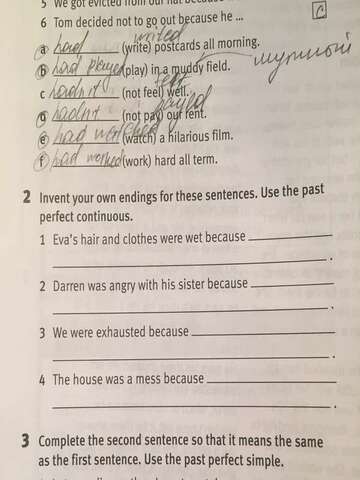 5 We got evicted from our flat because
6 Tom decided not to go out because he ...
writed
a had (write) postcards all morning.
b had played (play) in a muddy field.
felt
c hadn't (not feel) well.
payed
d hadn't (not pay) our rent.
e had watched (watch) a hilarious film.
f had worked (work) hard all term.
2 Invent your own endings for these sentences. Use the past
perfect continuous.
1 Eva's hair and clothes were wet because
.
2 Darren was angry with his sister because
.
3 We were exhausted because
.
4 The house was a mess because
.
3 Complete the second sentence so that it means the same
as the first sentence. Use the past perfect simple.